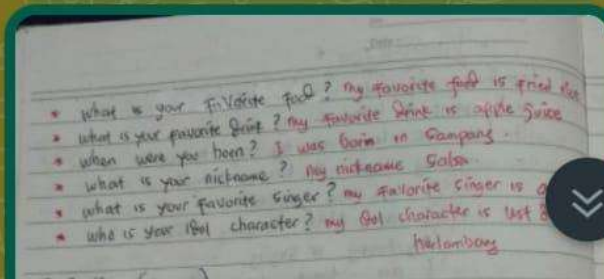 * what is your Faverite food? my favorite food is fried rice
* what is your favorite drink? my favorite drink is apple juice
* when were you born? I was born in Sampang.
* what is your nickname? my nickname Salsa
* what is your favorite singer? my favorite singer is
* who is your idol character? my idol character is